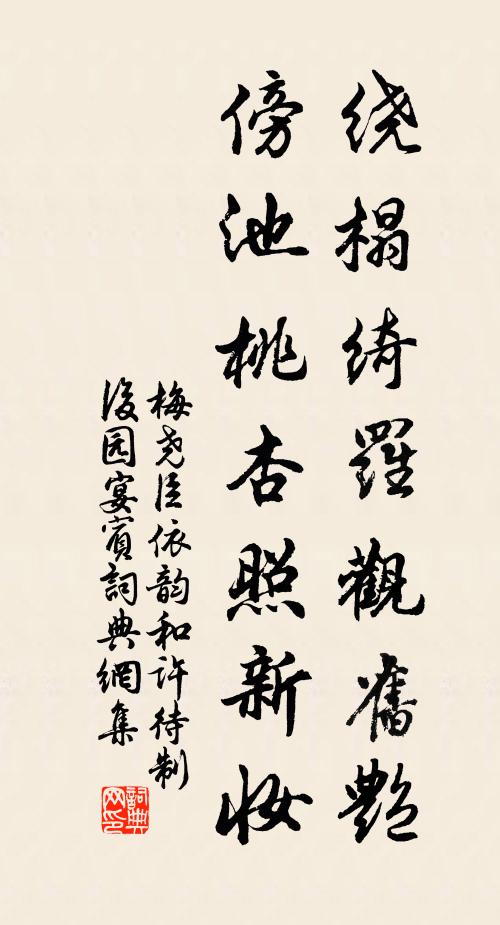 绕榻绮羅觀舊艷
傍池桃杏照新妆
梅尧臣依韵和许待制
後园宴賓詞典網集
詞典
网印